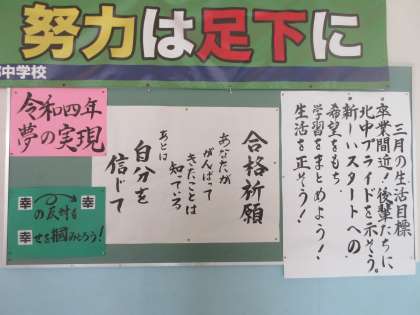 努力は足下に
中学校
令和四年
夢の実現
合格祈願
あなたが
がんばって
きたことは
知ている
あとは
自分を
信じて
三月の生活目標
卒業間近！後輩たちに
北中プライドを示そう。
新しいスタートへの
希望をもち、
学習をまとめよう！
生活を正そう！
幸 幸
の反対も
幸せを掴みとろう！